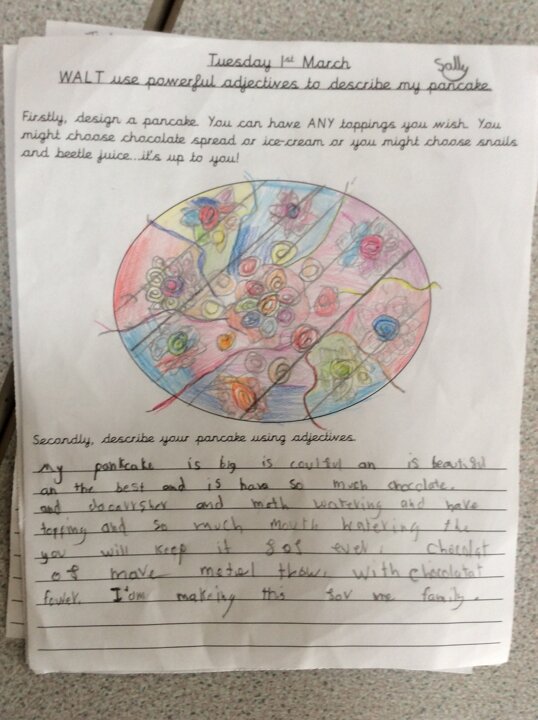 Tuesday 1st March
Sally
WALT use powerful adjectives to describe my pancake
Firstly, design a pancake. You can have ANY toppings you wish. You
might choose chocolate spread or ice-cream or you might choose snails
and beetle juice...it's up to you!
Secondly, describe your pancake using adjectives.
my pankcake is big is coulful an is beautiful
an the best and is have so much chocolate.
and and moth watering and have
topping and so much mouth watering the
you will keep it for ever. chocolat
of move thow. with
I'dm makeing this for me family.